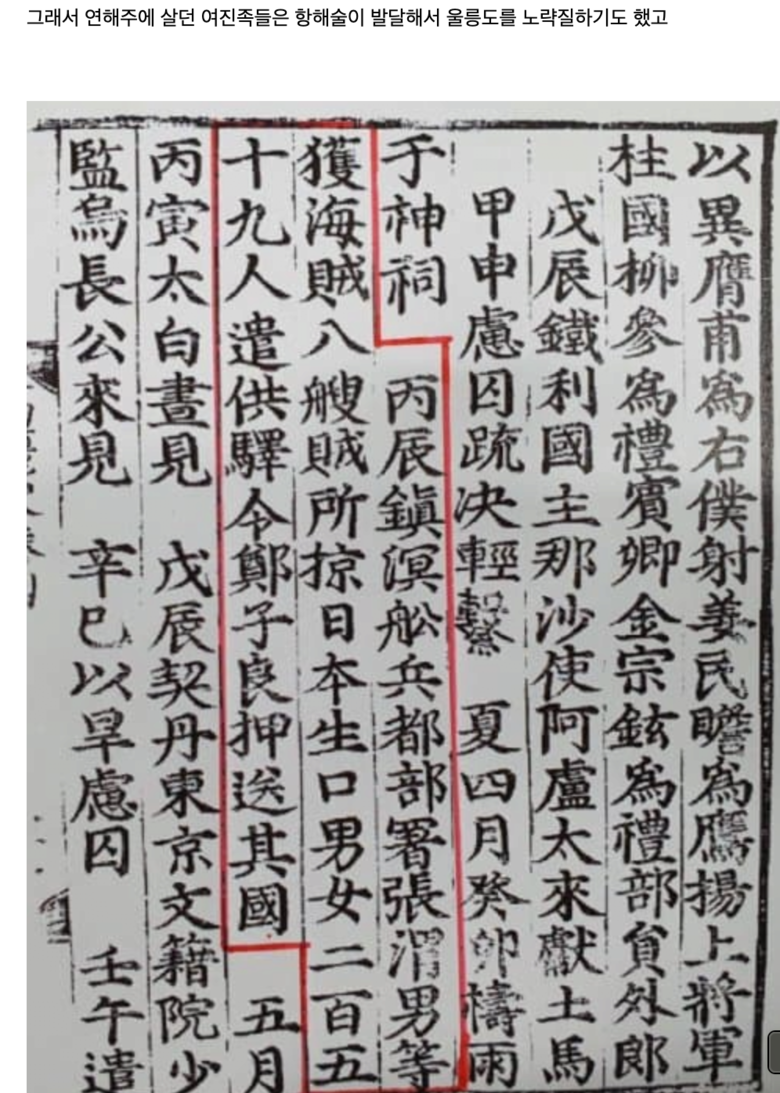 그래서 연해주에 살던 여진족들은 항해술이 발달해서 울릉도를 노략질하기도 했고
以異膺甫爲右僕射姜民瞻爲鷹揚上將軍
柱國柳參爲禮賓卿金宗鉉爲禮部員外郎
戊辰鐵利國主那沙使阿盧太來獻土馬
甲申慮囚疏決輕繫 夏四月癸卯禱雨
于神祠 丙辰鎭溟舩兵都部署張渭男等
獲海賊八艘賊所掠日本生口男女二百五
十九人遣供驛令鄭子良押送其國 五月
丙寅太白晝見 戊辰契丹東京文籍院少
監烏長公來見 辛巳以旱慮囚 壬午遣